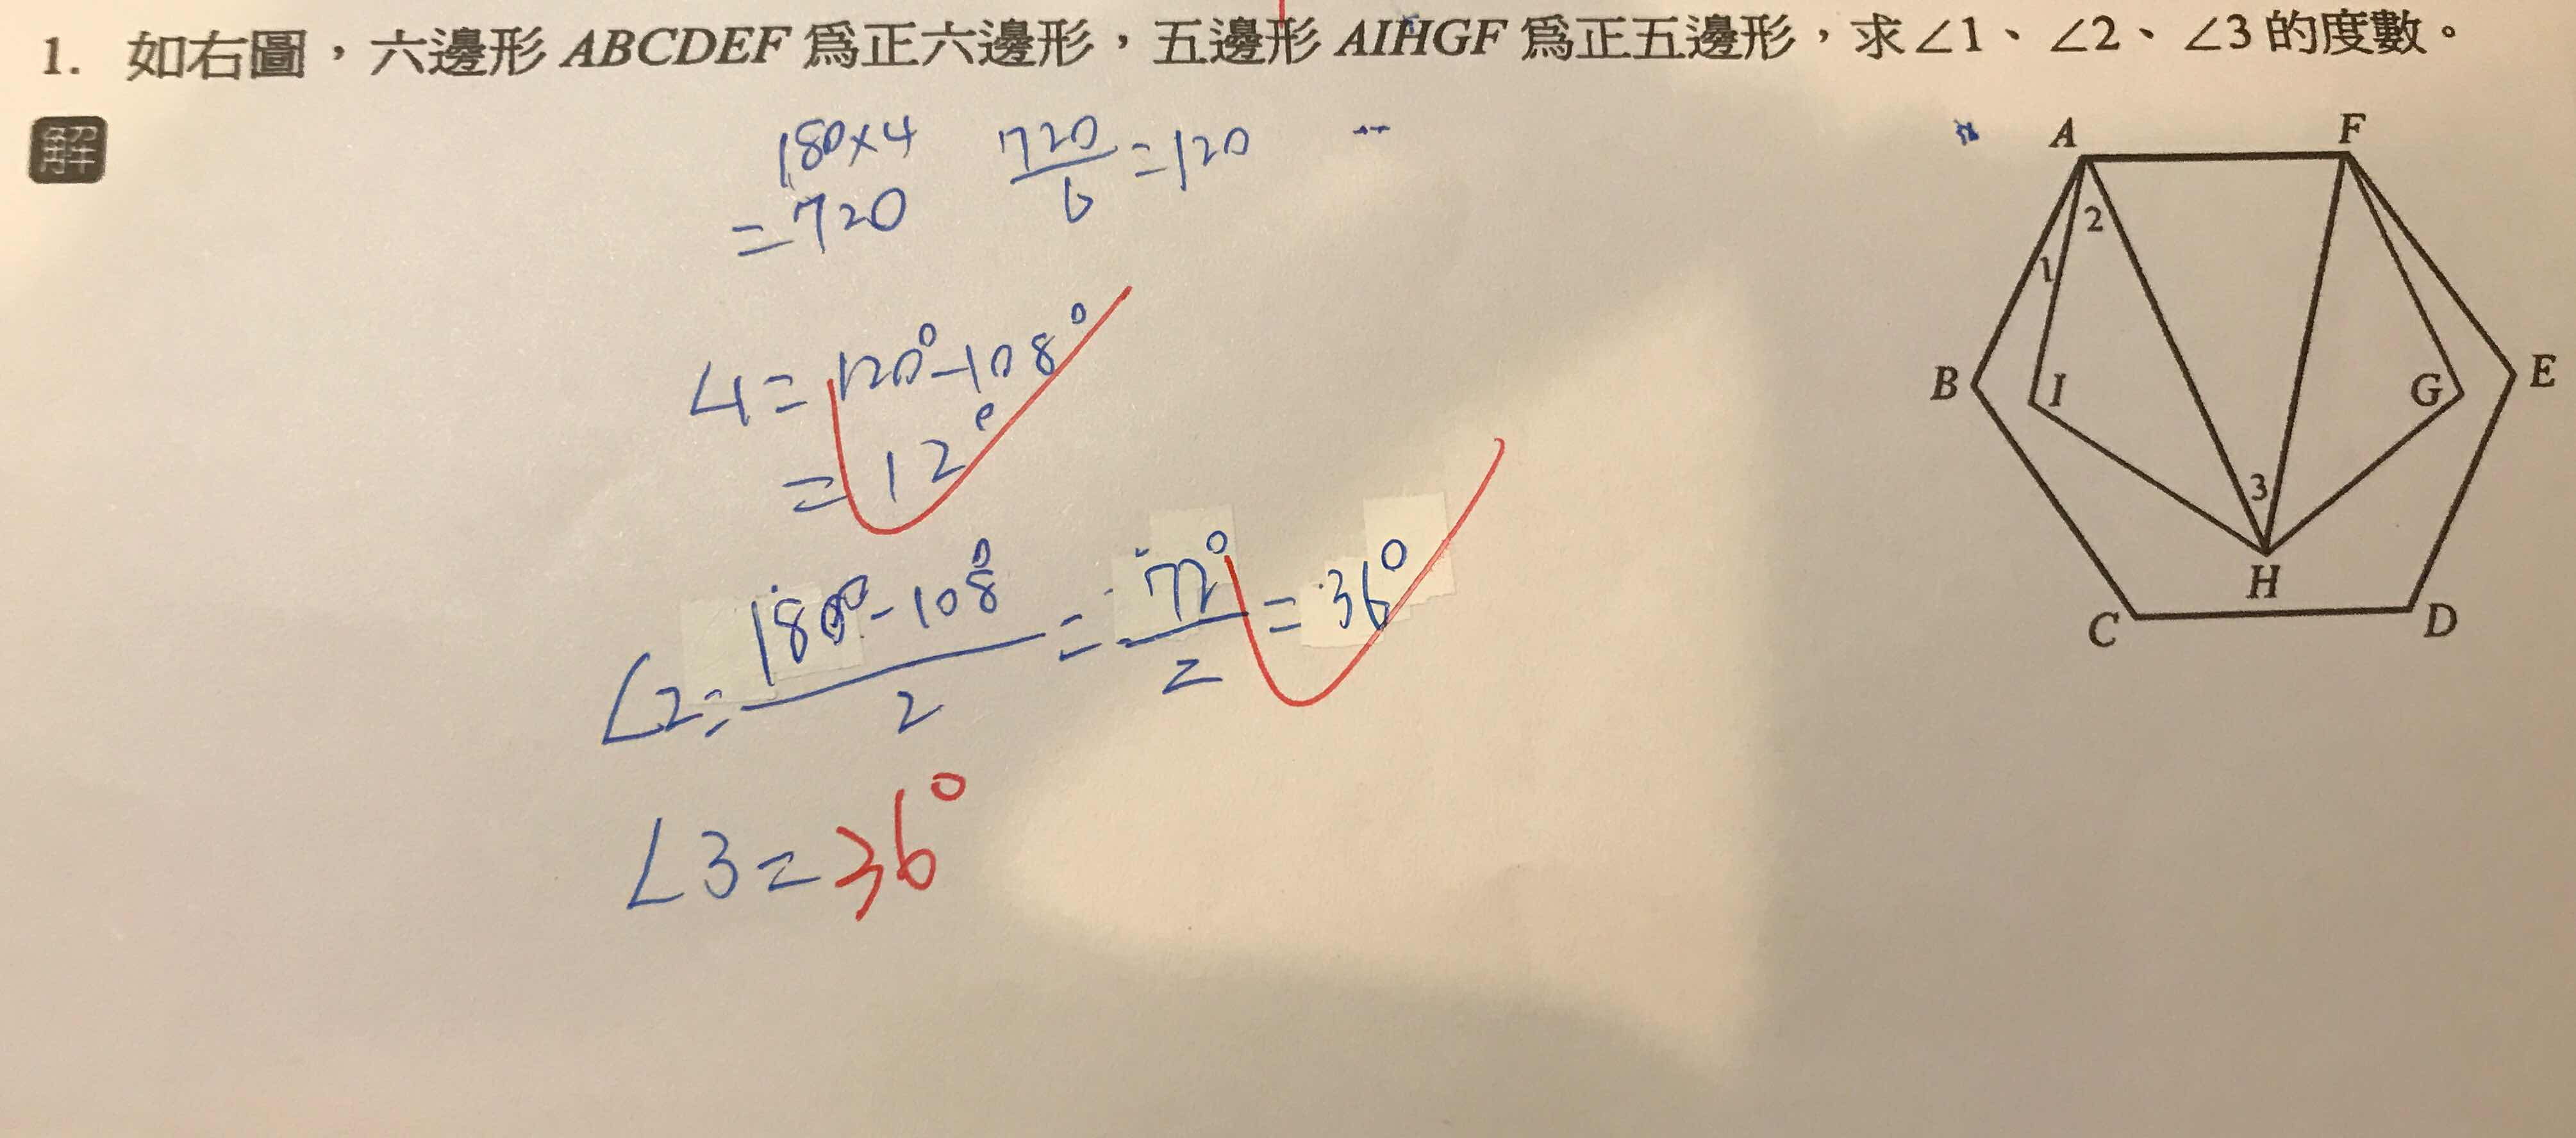 1. 如右圖，六邊形 ABCDEF 為正六邊形，五邊形 AIHGF 為正五邊形，求∠1、∠2、∠3 的度數。
解
180×4
=720
720/6=120
∠1=120°-108°
=12°
∠2=(180°-108°)/2=72°/2=36°
∠3=36°
A F
2
1
B I G E
3
H
C D